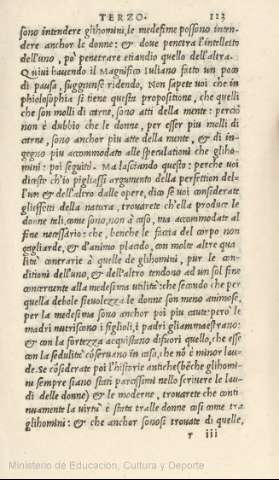 TERZO. 113
sono intendere glihomini, le medesime possono inten-
dere anchor le donne: & doue penetra l'intelletto
dell'uno, po penetrare etiandio quello dell'altra.
Quiui hauendo il Magnifico Iuliano fatto un poco
di pausa, suggiunse ridendo, Non sapete uoi che in
phiolosophia si tiene questa propositione, che quelli
che son molli di carne, sono atti della mente: perciò
non è dubbio che le donne, per esser piu molli di
carne, sono anchor piu atte della mente, & di in-
gegno piu accommodato alle speculationi che gliho-
mini: poi seguitò. Ma lasciando questo: perche uoi
diceste ch'io pigliassi argumento della perfettion dell'
un & dell'altro dalle opere, dico se uoi considerate
glieffetti della natura, trouarete ch'ella produce le
donne tali, come sono, non à caso, ma accommodate al
fine necessario: che, benche le faccia del corpo non
gagliarde, & d'animo placido, con molte altre qua
lità contrarie à quelle de glihomini, pur le con-
ditioni dell'uno, & dell'altro tendono ad un sol fine
concernente alla medesima utilità: che secondo che per
quella debole fieuolezza le donne son meno animose,
per la medesima sono anchor poi piu caute: però le
madri nutriscono i figlioli, i padri gliammaestrano:
& con la fortezza acquistano difuori quello, che esse
con la sedulità cōseruano in casa, che nō è minor lau-
de. Se cōsiderate poi l'historie antiche (bēche glihomi
ni sempre siano stati parcissimi nello scriuere le lau-
di delle donne) & le moderne, trouarete che conti-
nuamente la uirtù è stata tralle donne cosi come tra
glihomini: & che anchor sonosi trouate di quelle,
r iii
Ministerio de Educación, Cultura y Deporte